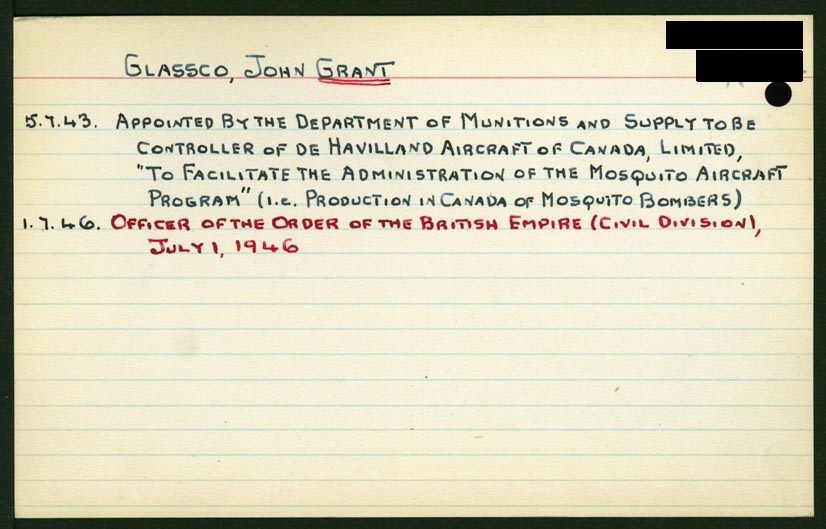 GLASSCO, JOHN GRANT
5.7.43. APPOINTED BY THE DEPARTMENT OF MUNITIONS AND SUPPLY TO BE
CONTROLLER OF DE HAVILLAND AIRCRAFT OF CANADA, LIMITED,
"TO FACILITATE THE ADMINISTRATION OF THE MOSQUITO AIRCRAFT
PROGRAM" (I.E. PRODUCTION IN CANADA OF MOSQUITO BOMBERS)
1.7.46. OFFICER OF THE ORDER OF THE BRITISH EMPIRE (CIVIL DIVISION),
JULY 1, 1946